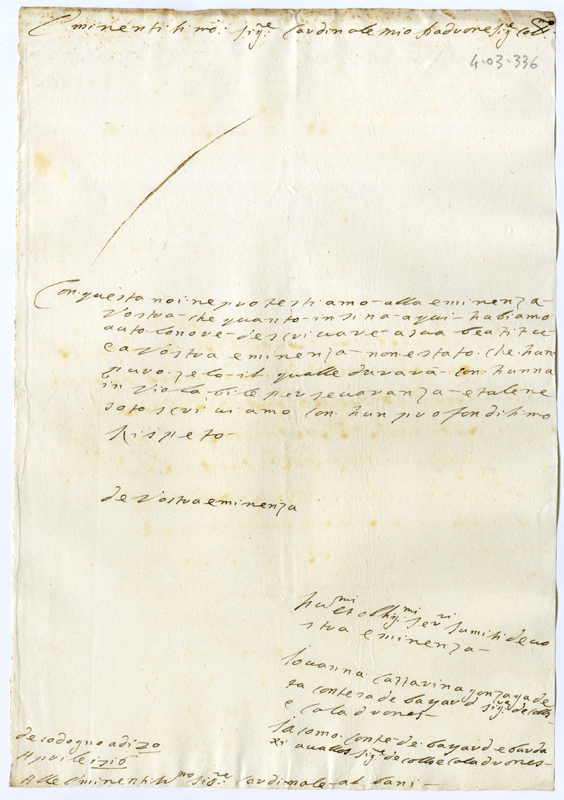 Eminentisimo: sig.re Cardinale mio padrone sig.e coll.mo
4-03-336
Con questa noi ne protestiamo alla eminenza
Vostra che quanto insina a qui habiamo
auto lonore descrivare a sua beatitu
e a Vostra eminenza non estato che han
puro zelo il qualle durara con hanna
in violabile perseuaranza e tale ne
sotoscriuiamo con hun profondisimo
Rispeto
de Vostra eminenza
hu.mi et obblig.mi ser.ri sumisi de uo
stra eminenza
Iouanna Cattarina gonzaga de
ta contesa de bayard sig.ra de colle
e caladrones
Iacomo conte de bayard e
sig.re de colle e caladrones
de codogno adi 20
Aprile 1716
Alle Eminentis.mo sig.re Cardinale al bani